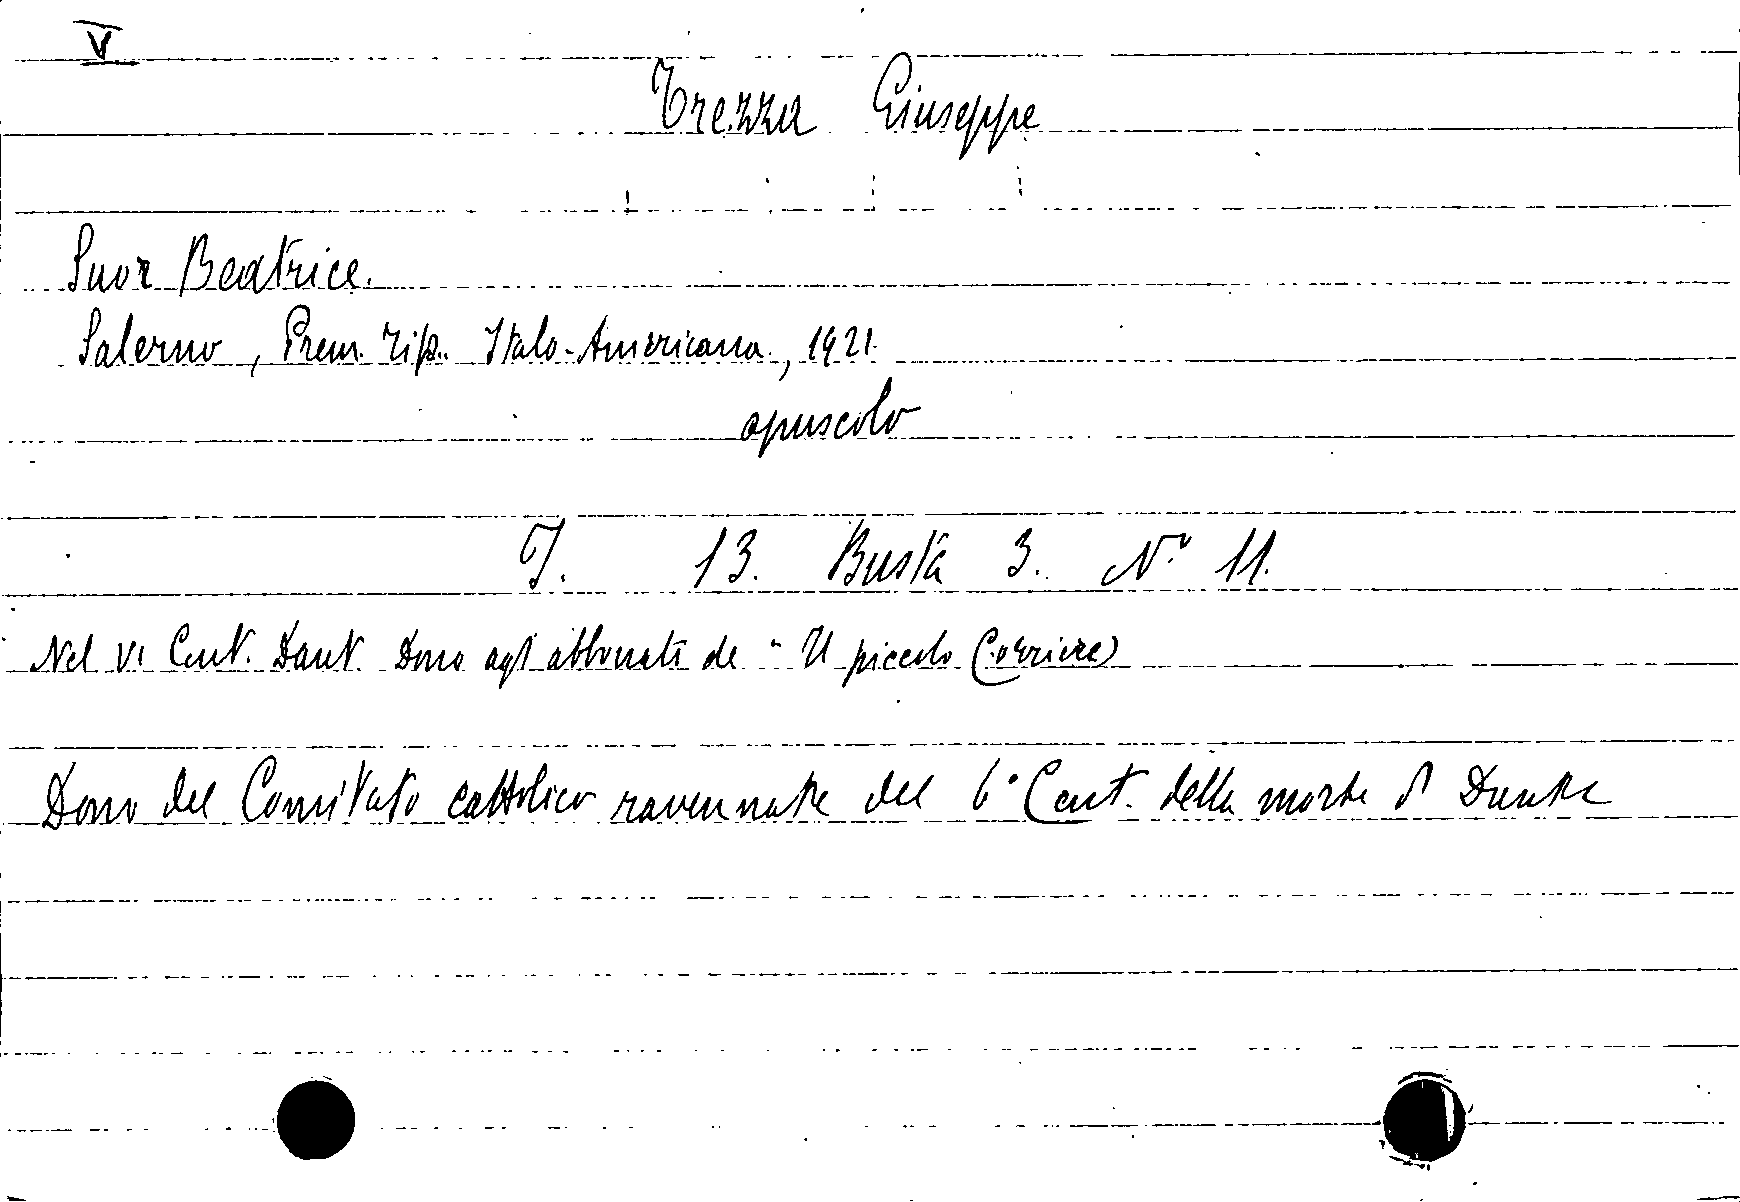 V
Trezza Giuseppe
Suor Beatrice.
Salerno, Prem. Tip. Italo-Americana, 1921.
opuscolo
I. 13. Busta 3. N.º 11.
Nel VI Cent. Dant. Dono agl abbonati de "Il piccolo Corriere)
Dono del Comitato cattolico ravennate del 6º Cent. della morte di Dante